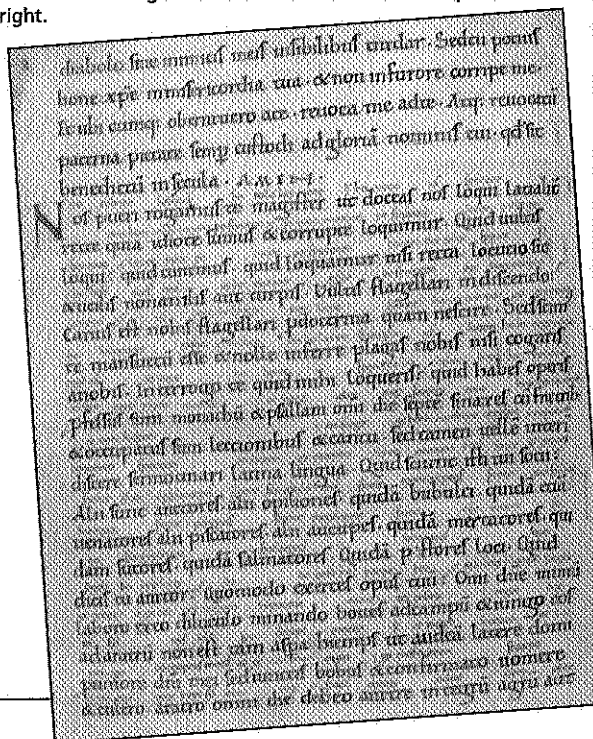 right.
diabolo sive inimicis meis visibilibus tradar. Sed cū potius
bone xp̄e misericordia tua & non in furore corripe me.
ubi cumq; a te revoca me ad te. Atq; revocatū
paterna pietate semp custodi ad gloriā nominis tui. qd sic
benedictū in secula. AMEN.
Nos pueri rogamus te magister ut doceas nos loqui latialit
recte quia idiote sumus & corrupte loquimur. Quid vultis
loqui. quid curamus quid loquamur nisi recta locutio sit
& utilis non anilis aut turpis. Vultis flagellari in discendo
Carius est nobis flagellari p doctrina quam nescire. Sed scim
te mansuetū esse & nolle inferre plagas nobis nisi cogaris
a nobis. Interrogo te quid mihi loqueris. quid habes opis
pfessus sum monachū & psallam omī die septē sinaxes cū
& occupatus sum lectionibus & cantu. sed tamen vellē interi
discere sermocinari latina lingua. Quid sciunt isti tui socii.
Alii sunt aratores alii opiliones. quidā bubulci quidā etiā
venatores alii piscatores alii aucupes. quidā mercatores. qui
dam sutores. quidā salinatores quidā pistores loci. Quid
dicis tu arator. quomodo exerces opus tuū. O mi dn̄e nimiū
laboro exeo diluculo minando boves ad campū & iungo eos
ad aratrū non est tam aspa hiemps ut audeā latere domi
timore dn̄i mei sed iunctis bobus & confirmato vomere
& cultro aratro omni die debeo arare integrū agrū aut